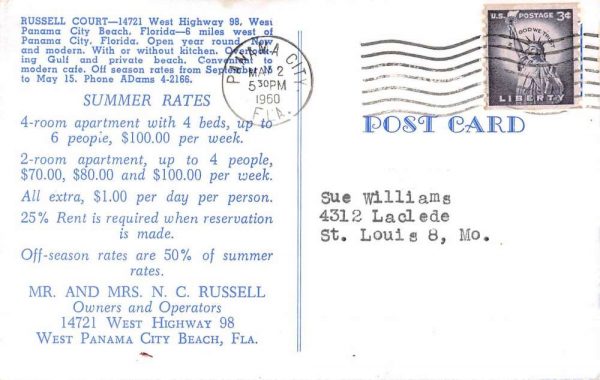 RUSSELL COURT—14721 West Highway 98, West
Panama City Beach, Florida—6 miles west of
Panama City, Florida. Open year round. New
and modern. With or without kitchen. Overlook-
ing Gulf and private beach. Convenient to
modern cafe. Off season rates from September 15
to May 15. Phone ADams 4-2166.
SUMMER RATES
4-room apartment with 4 beds, up to
6 people, $100.00 per week.
2-room apartment, up to 4 people,
$70.00, $80.00 and $100.00 per week.
All extra, $1.00 per day per person.
25% Rent is required when reservation
is made.
Off-season rates are 50% of summer
rates.
MR. AND MRS. N. C. RUSSELL
Owners and Operators
14721 WEST HIGHWAY 98
WEST PANAMA CITY BEACH, FLA.
PANAMA CITY
MAY 2
5 30 PM
1960
FLA.
U.S. POSTAGE 3¢
IN GOD WE TRUST
LIBERTY
POST CARD
Sue Williams
4312 Laclede
St. Louis 8, Mo.